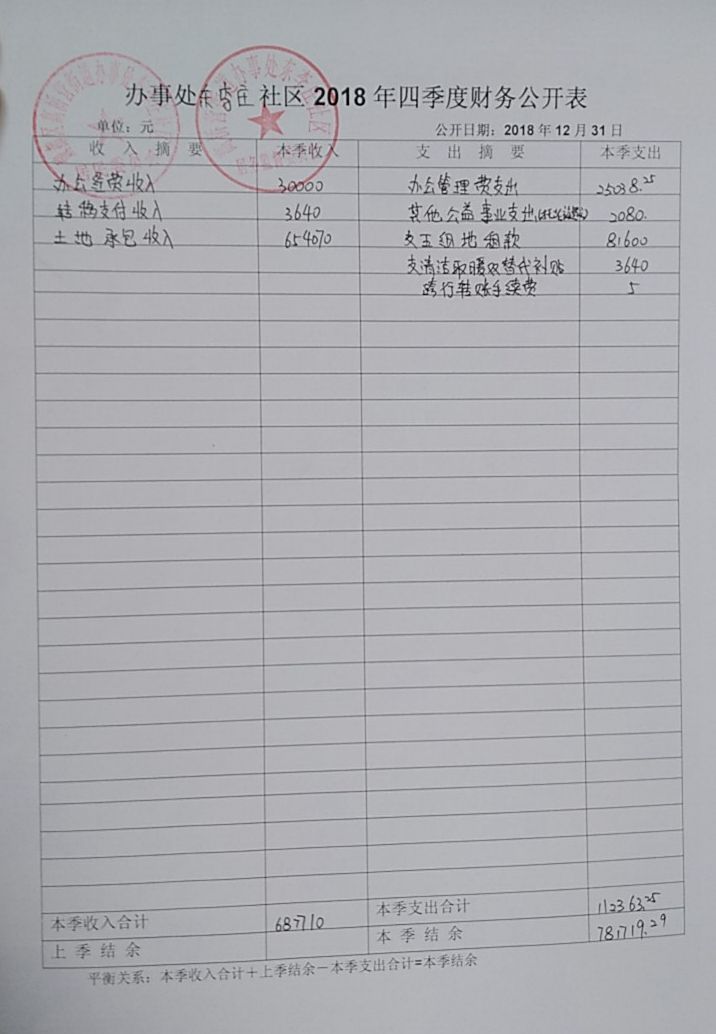 办事处东李庄社区 2018 年四季度财务公开表
单位：元 公开日期：2018 年 12 月 31 日
收 入 摘 要 本季收入 支 出 摘 要 本季支出
办公经费收入 30000 办公管理费支出 25038.25
转移支付收入 3640 其他公益事业支出 2080.
土地承包收入 654070 交五组地租款 81600
支清洁取暖双替代补贴 3640
跨行转账手续费 5
本季收入合计 687710 本季支出合计 112363.25
上 季 结 余 本 季 结 余 781719.29
平衡关系：本季收入合计＋上季结余－本季支出合计=本季结余